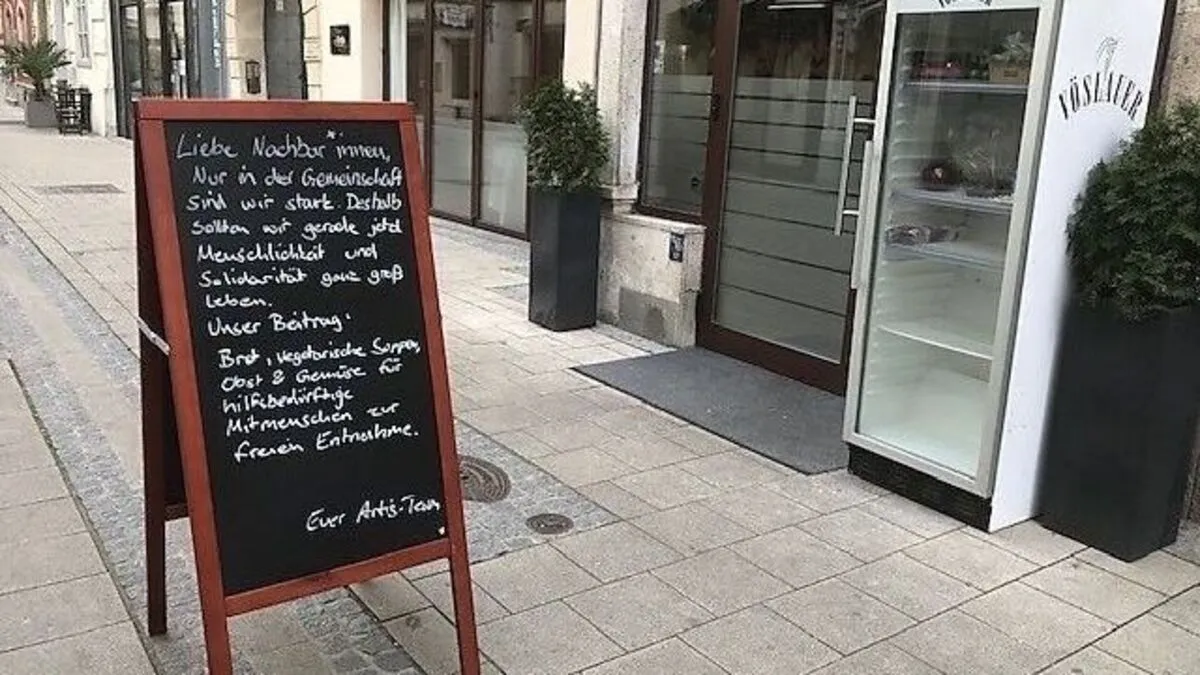 Liebe Nachbar*innen,
Nur in der Gemeinschaft
sind wir stark. Deshalb
sollten wir gerade jetzt
Menschlichkeit und
Solidarität ganz groß
leben.
Unser Beitrag:
Brot, vegetarische Suppen,
Obst & Gemüse für
hilfsbedürftige
Mitmenschen zur
freien Entnahme.
Euer Artis-Team
VÖSLAUER